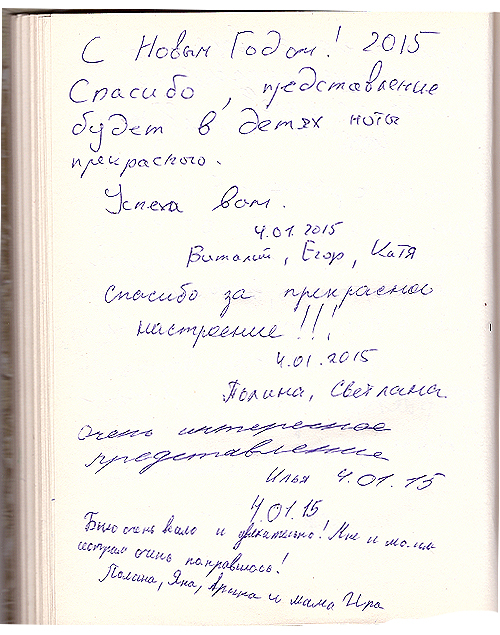 С Новым Годом! 2015
Спасибо, представление
будет в детях ноты
прекрасного.
Успеха вам.
4.01.2015
Виталий, Егор, Катя
Спасибо за прекрасное
настроение!!!
4.01.2015
Полина, Светлана.
Очень интересное
представление
Илья 4.01.15
4.01.15
Было очень весело и увлекательно! Мне и моим
сестрам очень понравилось!
Полина, Яна, Арина и мама Ира